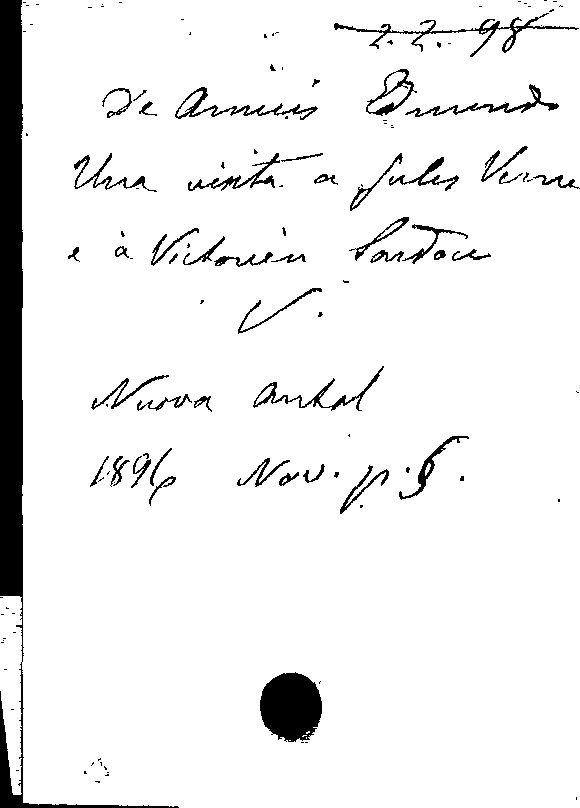 2.2.98
De Amicis Edmondo
Una visita a Jules Verne
e à Victorien Sardou
V.
Nuova Antol
1896 Nov. p. 5.